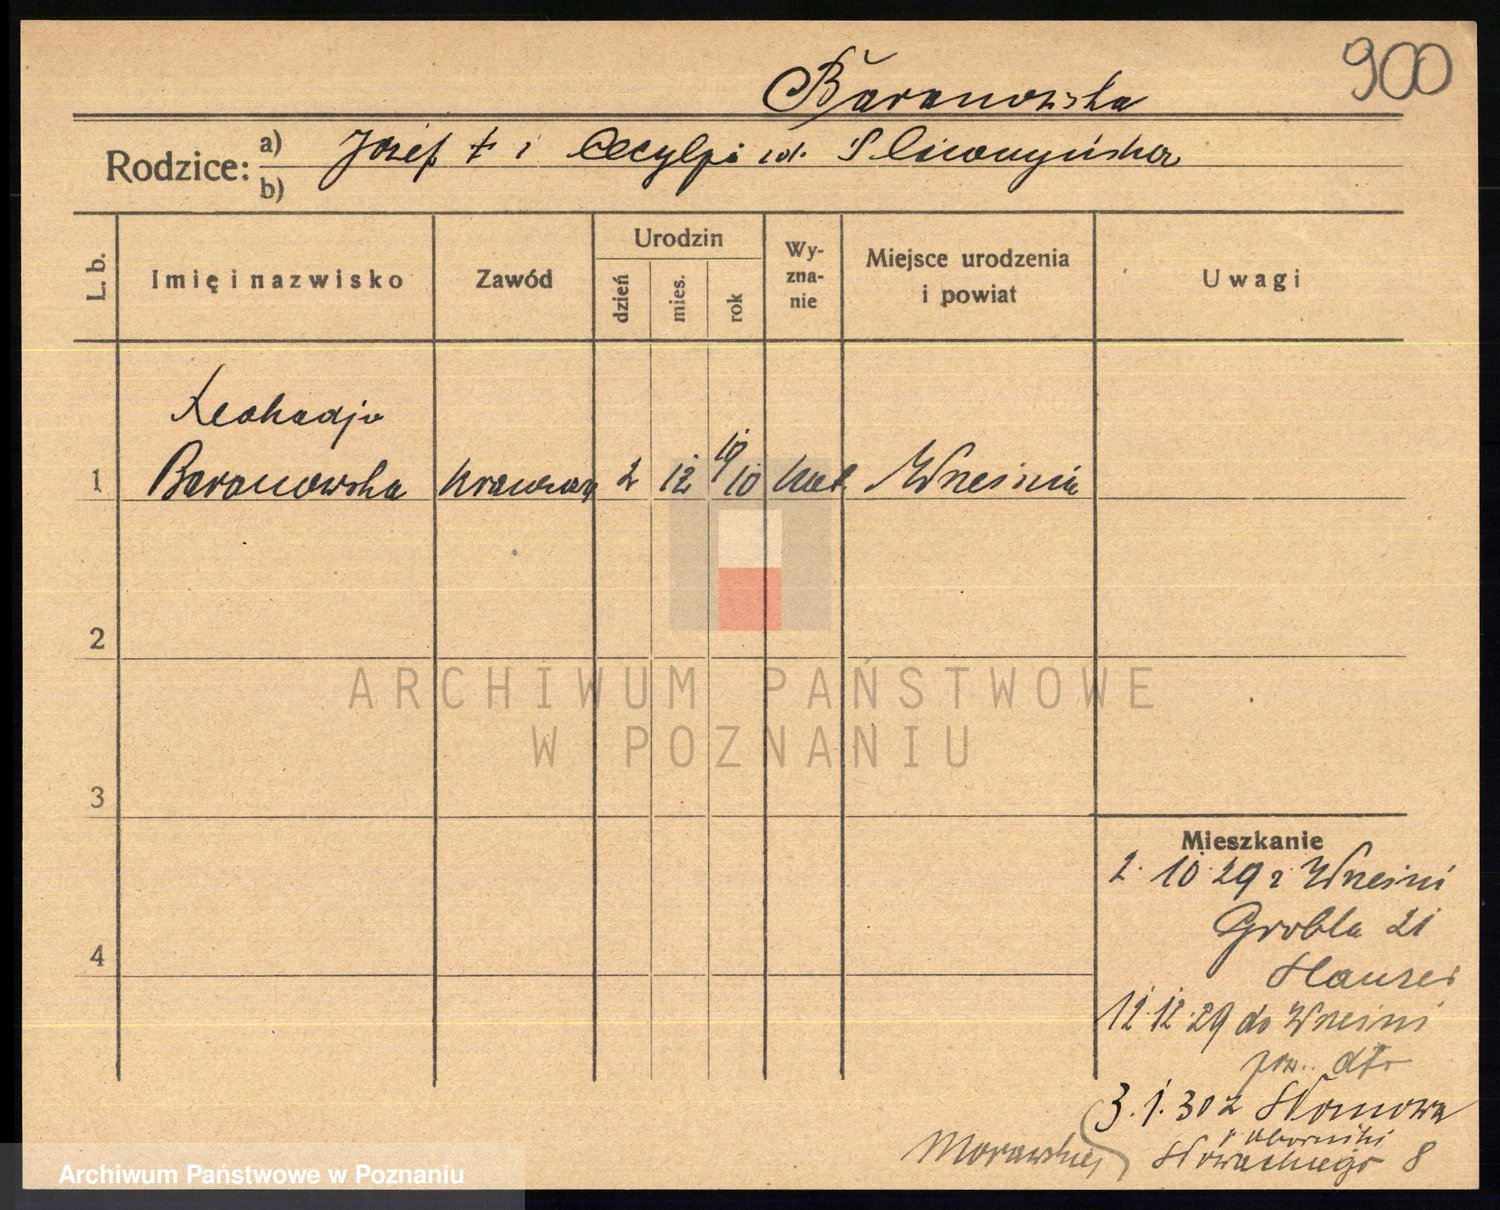 900
Baranowska
Rodzice: a) Józef † i Cecylja
b)
L. b.
Imię i nazwisko
Zawód
Urodzin
dzień
mies.
rok
Wy-
zna-
nie
Miejsce urodzenia
i powiat
Uwagi
Leokadja
1 Baranowska krawcowa 2 12 19/10 kat Września
2
3
4
Mieszkanie
2. 10. 29 z Wrześni
Grobla 21
12. 12. 29 do Wrześni
3. 1. 30 z
Morawskiej
Nowackiego 8
ARCHIWUM PAŃSTWOWE
W POZNANIU
Archiwum Państwowe w Poznaniu